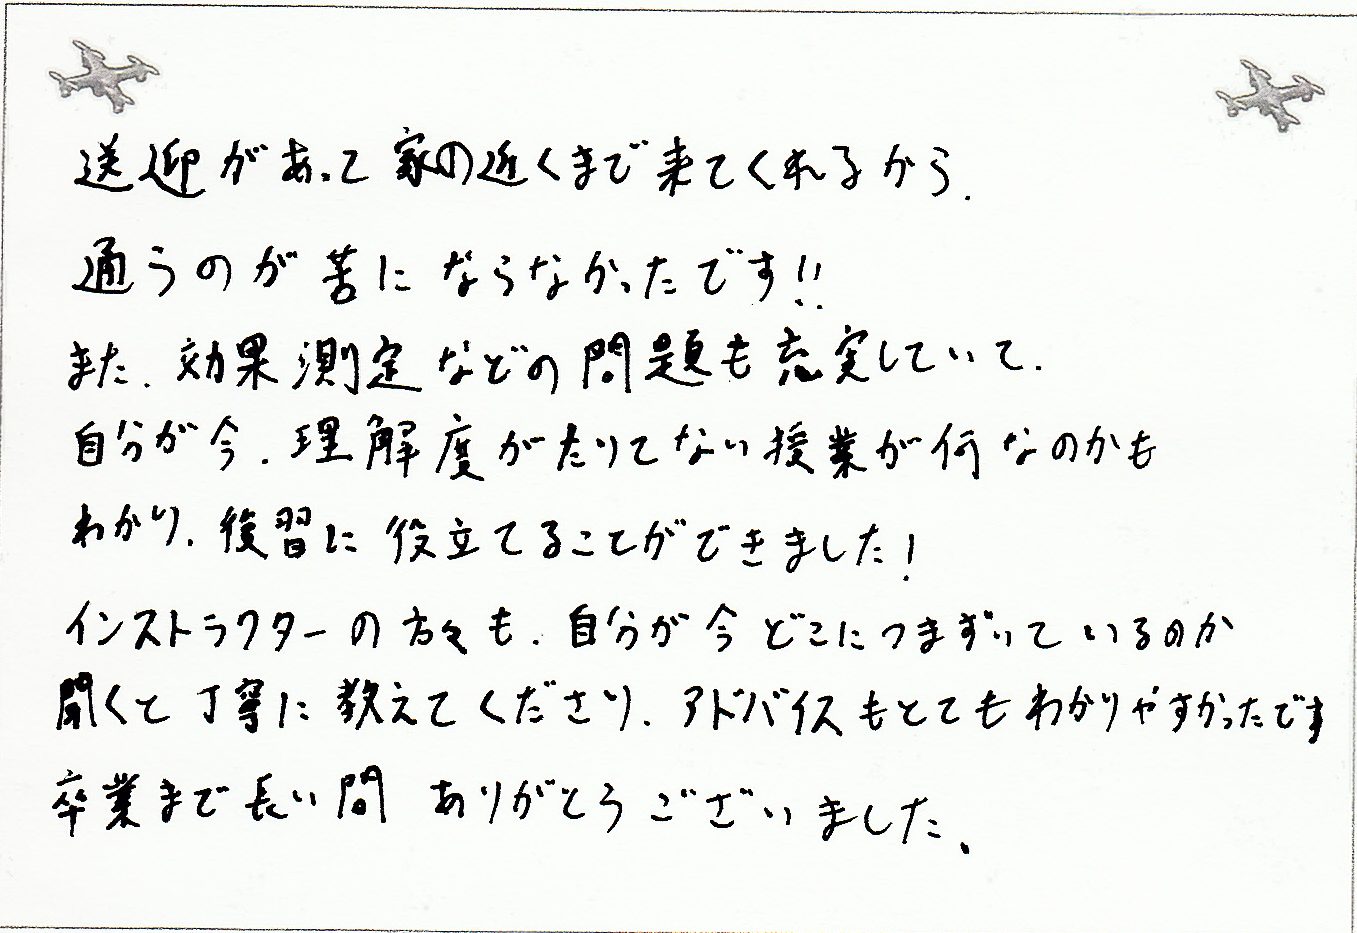 送迎があって家の近くまで来てくれるから、
通うのが苦にならなかったです!!
また、効果測定などの問題も充実していて、
自分が今、理解度がたりてない授業が何なのかも
わかり、復習に役立てることができました!
インストラクターの方々も、自分が今どこにつまずいているのか
聞くと丁寧に教えてくださり、アドバイスもとてもわかりやすかったです
卒業まで長い間 ありがとうございました、